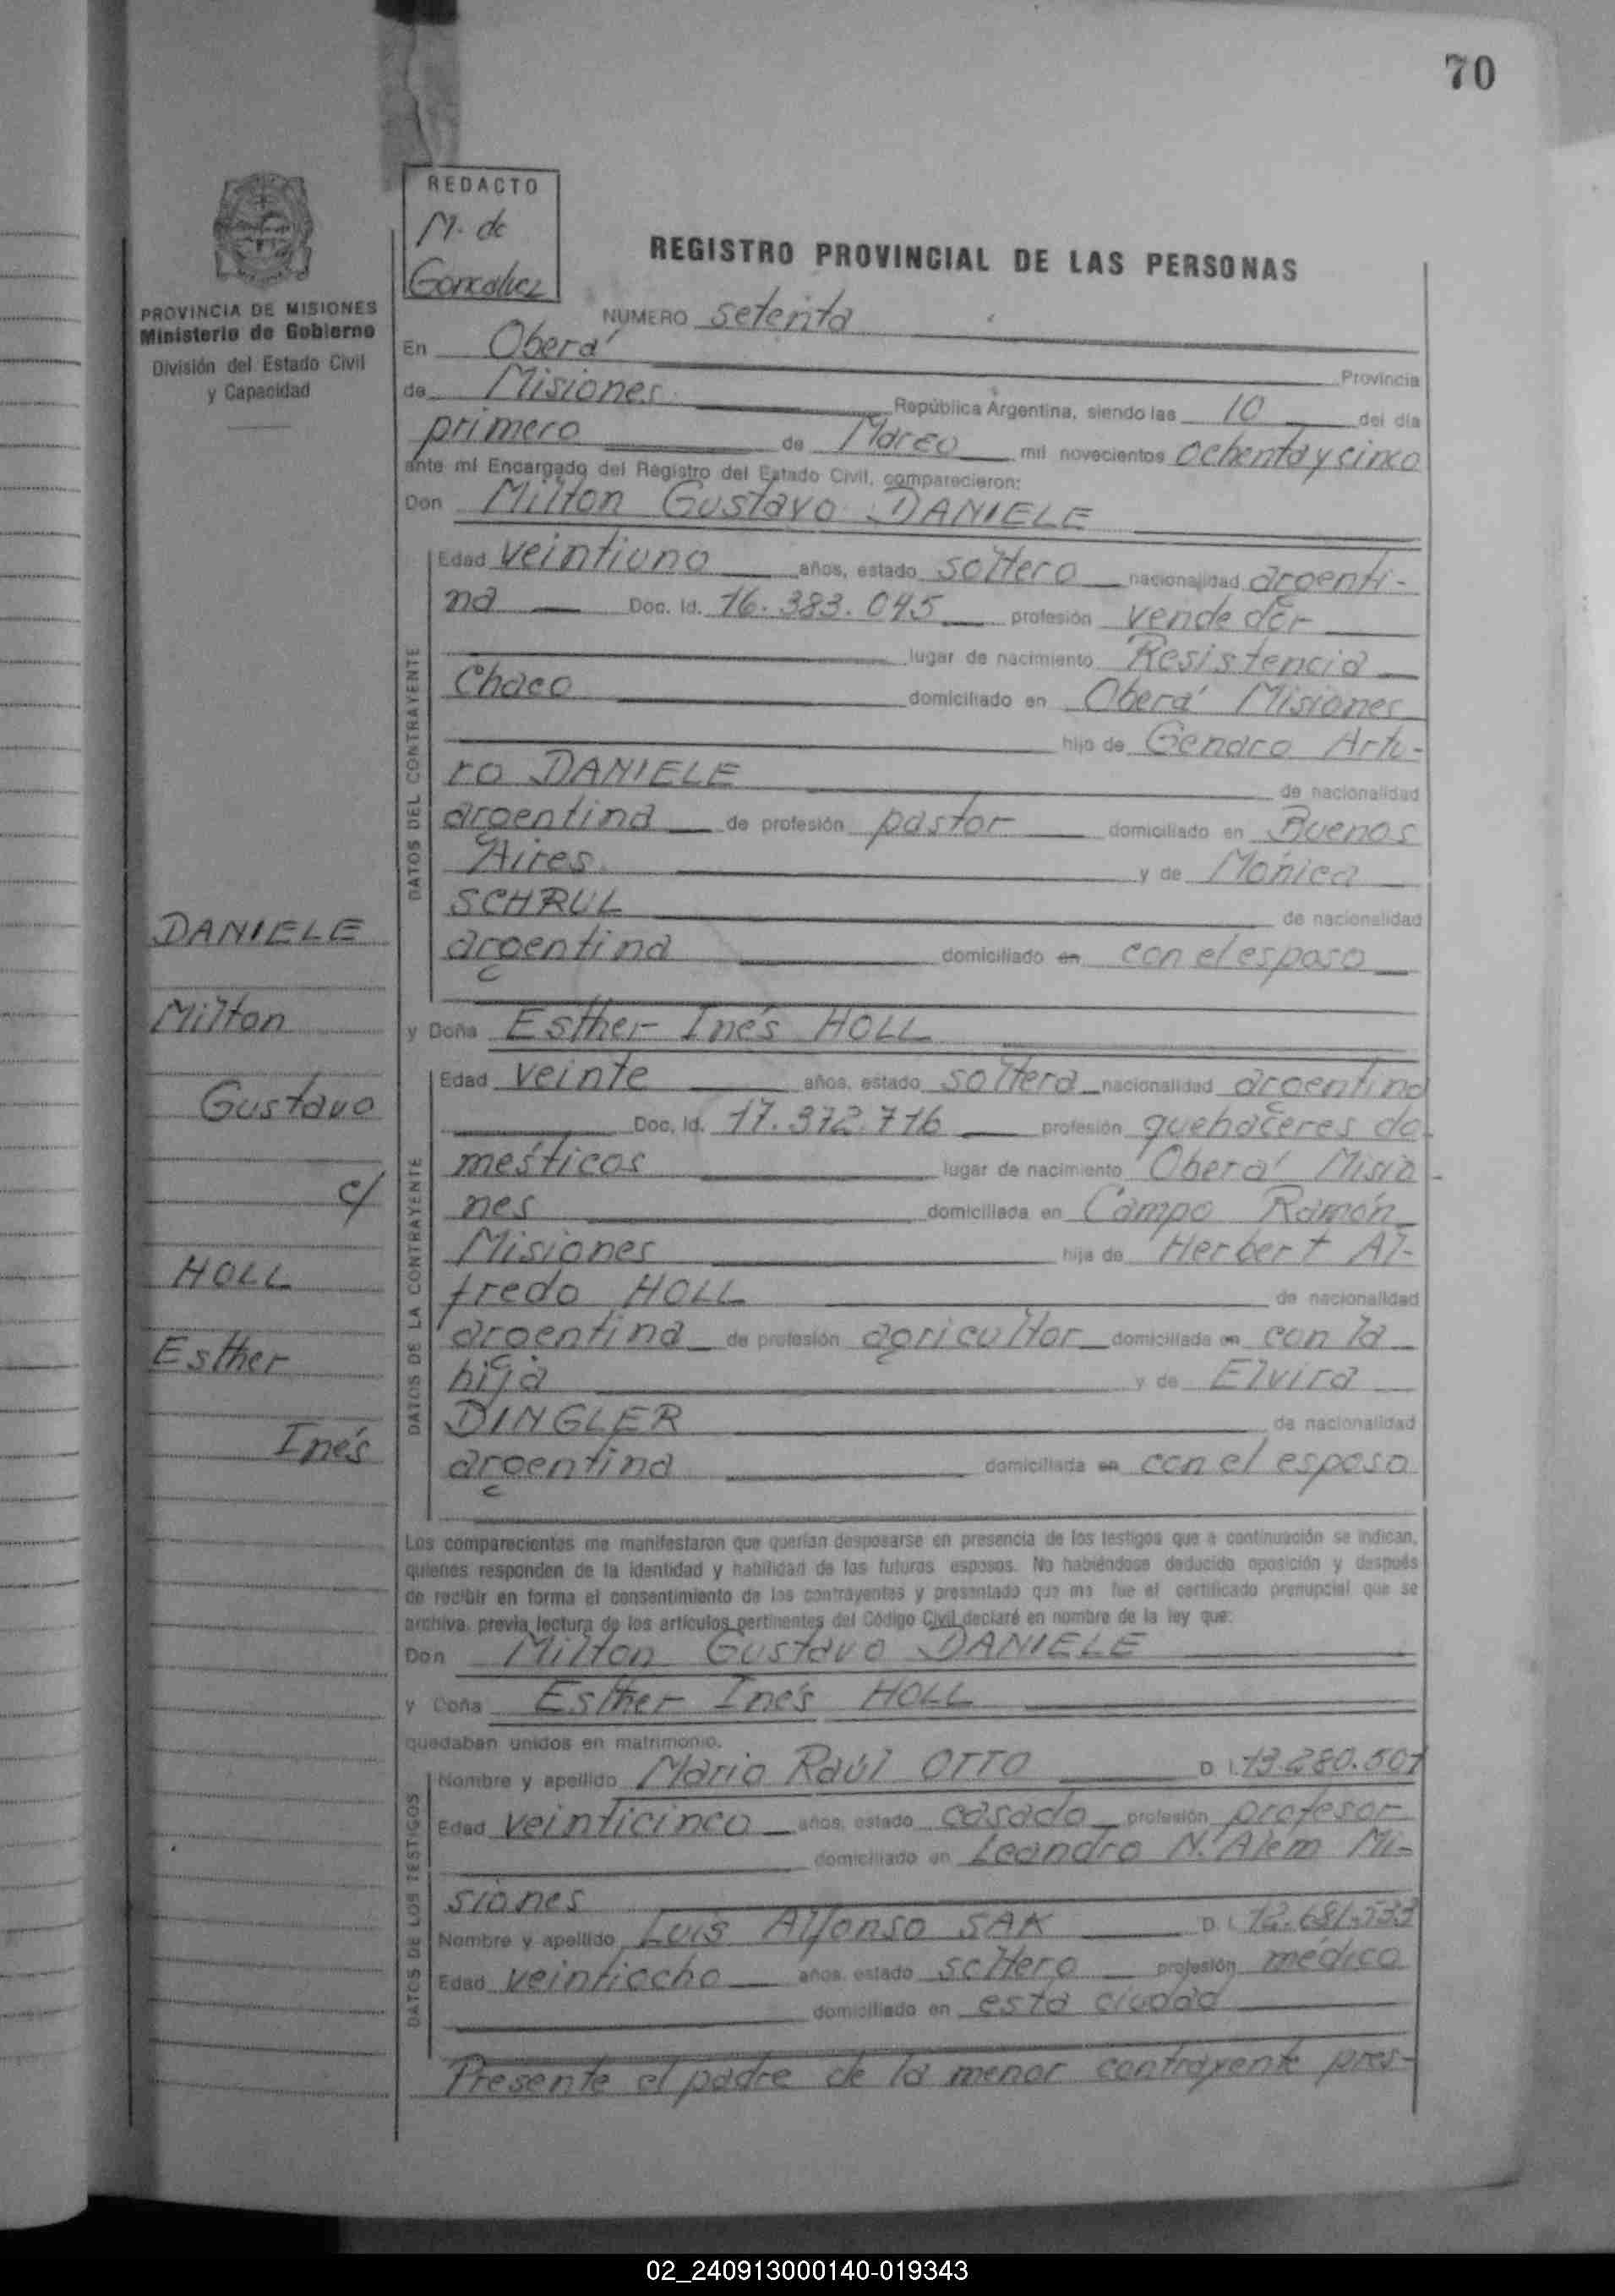 70
REDACTO
M. de
Goncalvez
REGISTRO PROVINCIAL DE LAS PERSONAS
PROVINCIA DE MISIONES
Ministerio de Gobierno
División del Estado Civil
y Capacidad
NUMERO setenta
En Oberá Provincia
de Misiones República Argentina, siendo las 10 del dia
primero de Marzo mil novecientos ochenta y cinco
ante mí Encargado del Registro del Estado Civil, comparecieron:
Don Milton Gustavo DANIELE
DATOS DEL CONTRAYENTE
Edad veintiuno años, estado soltero nacionalidad argenti-
na Doc. Id. 16.383.045 profesión vendedor
lugar de nacimiento Resistencia
Chaco domiciliado en Oberá Misiones
hijo de Genaro Artu-
ro DANIELE de nacionalidad
argentina de profesión pastor domiciliado en Buenos
Aires y de Mónica
SCHRUL de nacionalidad
argentina domiciliado en con el esposo
y Doña Esther Inés HOLL
DATOS DE LA CONTRAYENTE
Edad veinte años, estado soltera nacionalidad argentina
Doc. Id. 17.372.716 profesión quehaceres do-
mésticos lugar de nacimiento Oberá Misio-
nes domiciliada en Campo Ramón
Misiones hija de Herbert Al-
fredo HOLL de nacionalidad
argentina de profesión agricultor domiciliada en con la
hija y de Elvira
DINGLER de nacionalidad
argentina domiciliada en con el esposo
DANIELE
Milton
Gustavo
c/
HOLL
Esther
Inés
Los comparecientes me manifestaron que querían desposarse en presencia de los testigos que a continuación se indican,
quienes responden de la identidad y habilidad de los futuros esposos. No habiéndose deducido oposición y después
de recibir en forma el consentimiento de los contrayentes y presentado que me fue el certificado prenupcial que se
archiva, previa lectura de los artículos pertinentes del Código Civil declaré en nombre de la ley que:
Don Milton Gustavo DANIELE
y Doña Esther Inés HOLL
quedaban unidos en matrimonio.
DATOS DE LOS TESTIGOS
Nombre y apellido Mario Raúl OTTO D. I. 13.280.501
Edad veinticinco años, estado casado profesión profesor
domiciliado en Leandro N. Alem Mi-
siones
Nombre y apellido Luis Alfonso SAK D. I. 12.681.533
Edad veintiocho años, estado soltero profesión médico
domiciliado en esta ciudad
Presente el padre de la menor contrayente pres-
02_240913000140-019343